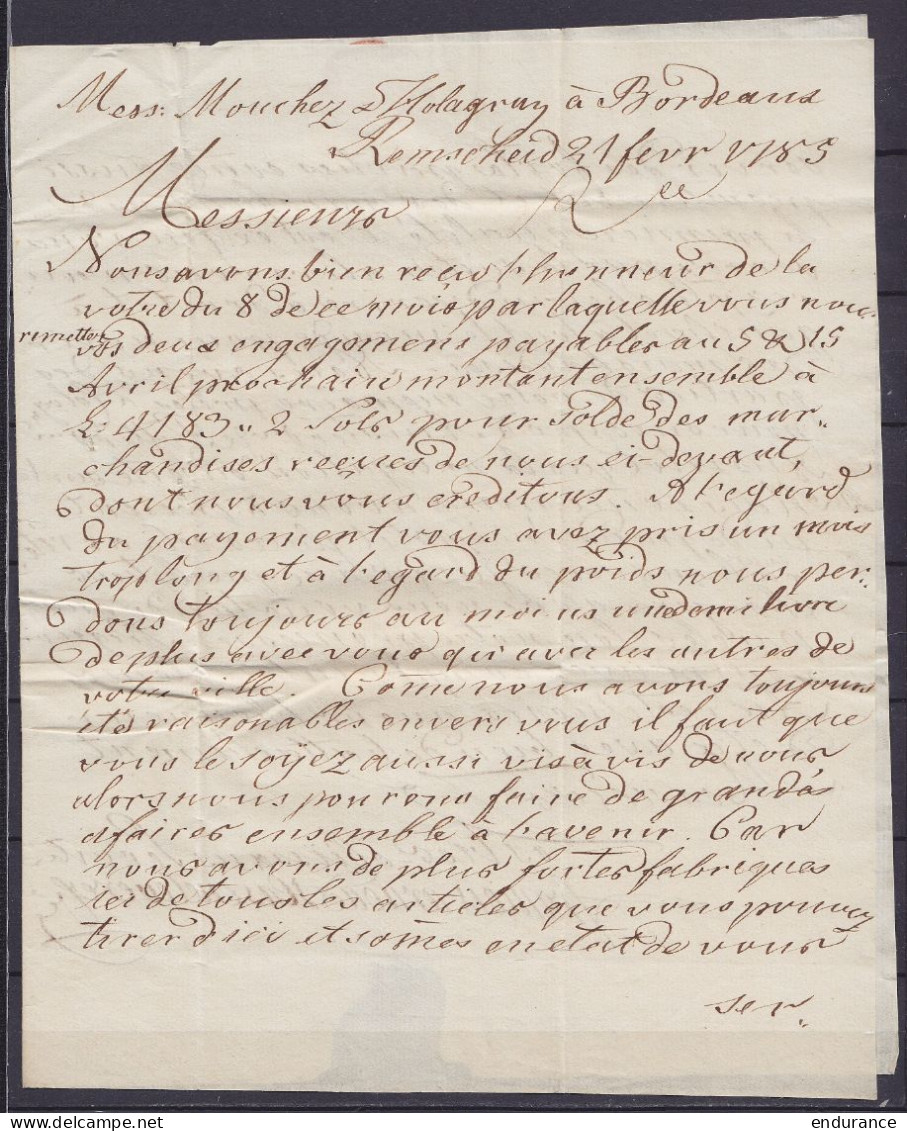 Mess: Mouchez & Holagray à Bordeaux
Remscheid 21 fevr 1785
Messieurs
Nous avons bien reçu l'honneur de la
votre du 8 de ce mois par laquelle vous nous
remettez
vos deux engagemens payables au 5 & 15
Avril prochain montant ensemble à
L: 4183 „ 2 Sols pour solde des mar„
chandises reçues de nous ci-devant,
dont nous vous creditons. A l'egard
du payement vous avez pris un mois
trop long et à l'egard du poids nous per„
dons toujours au moins une demi livre
de plus avec vous qu'avec les autres de
votre ville. Come nous avons toujours
étés raisonables envers vous il faut que
vous le soÿez aussi vis à vis de nous
alors nous pourons faire de grandes
afaires ensemble à l'avenir. Car
nous avons de plus fortes fabriques
ici de tous les articles que vous pouvez
tirer d'ici et somes en etat de vous
ser„
endurance